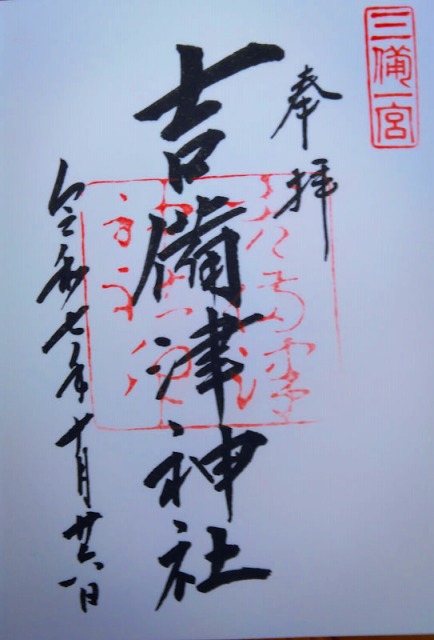 三備一宮
奉拝
吉備津神社
令和七年十月廿六日